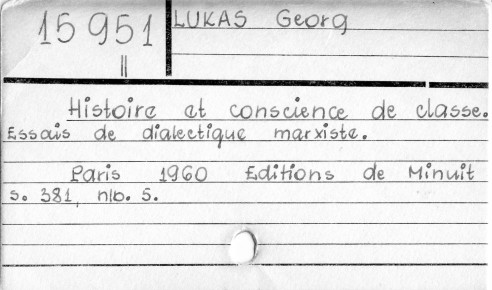 15 951
LUKAS Georg
II
Histoire et conscience de classe.
Essais de dialectique marxiste.
Paris 1960 Editions de Minuit
s. 381, nlb. 5.